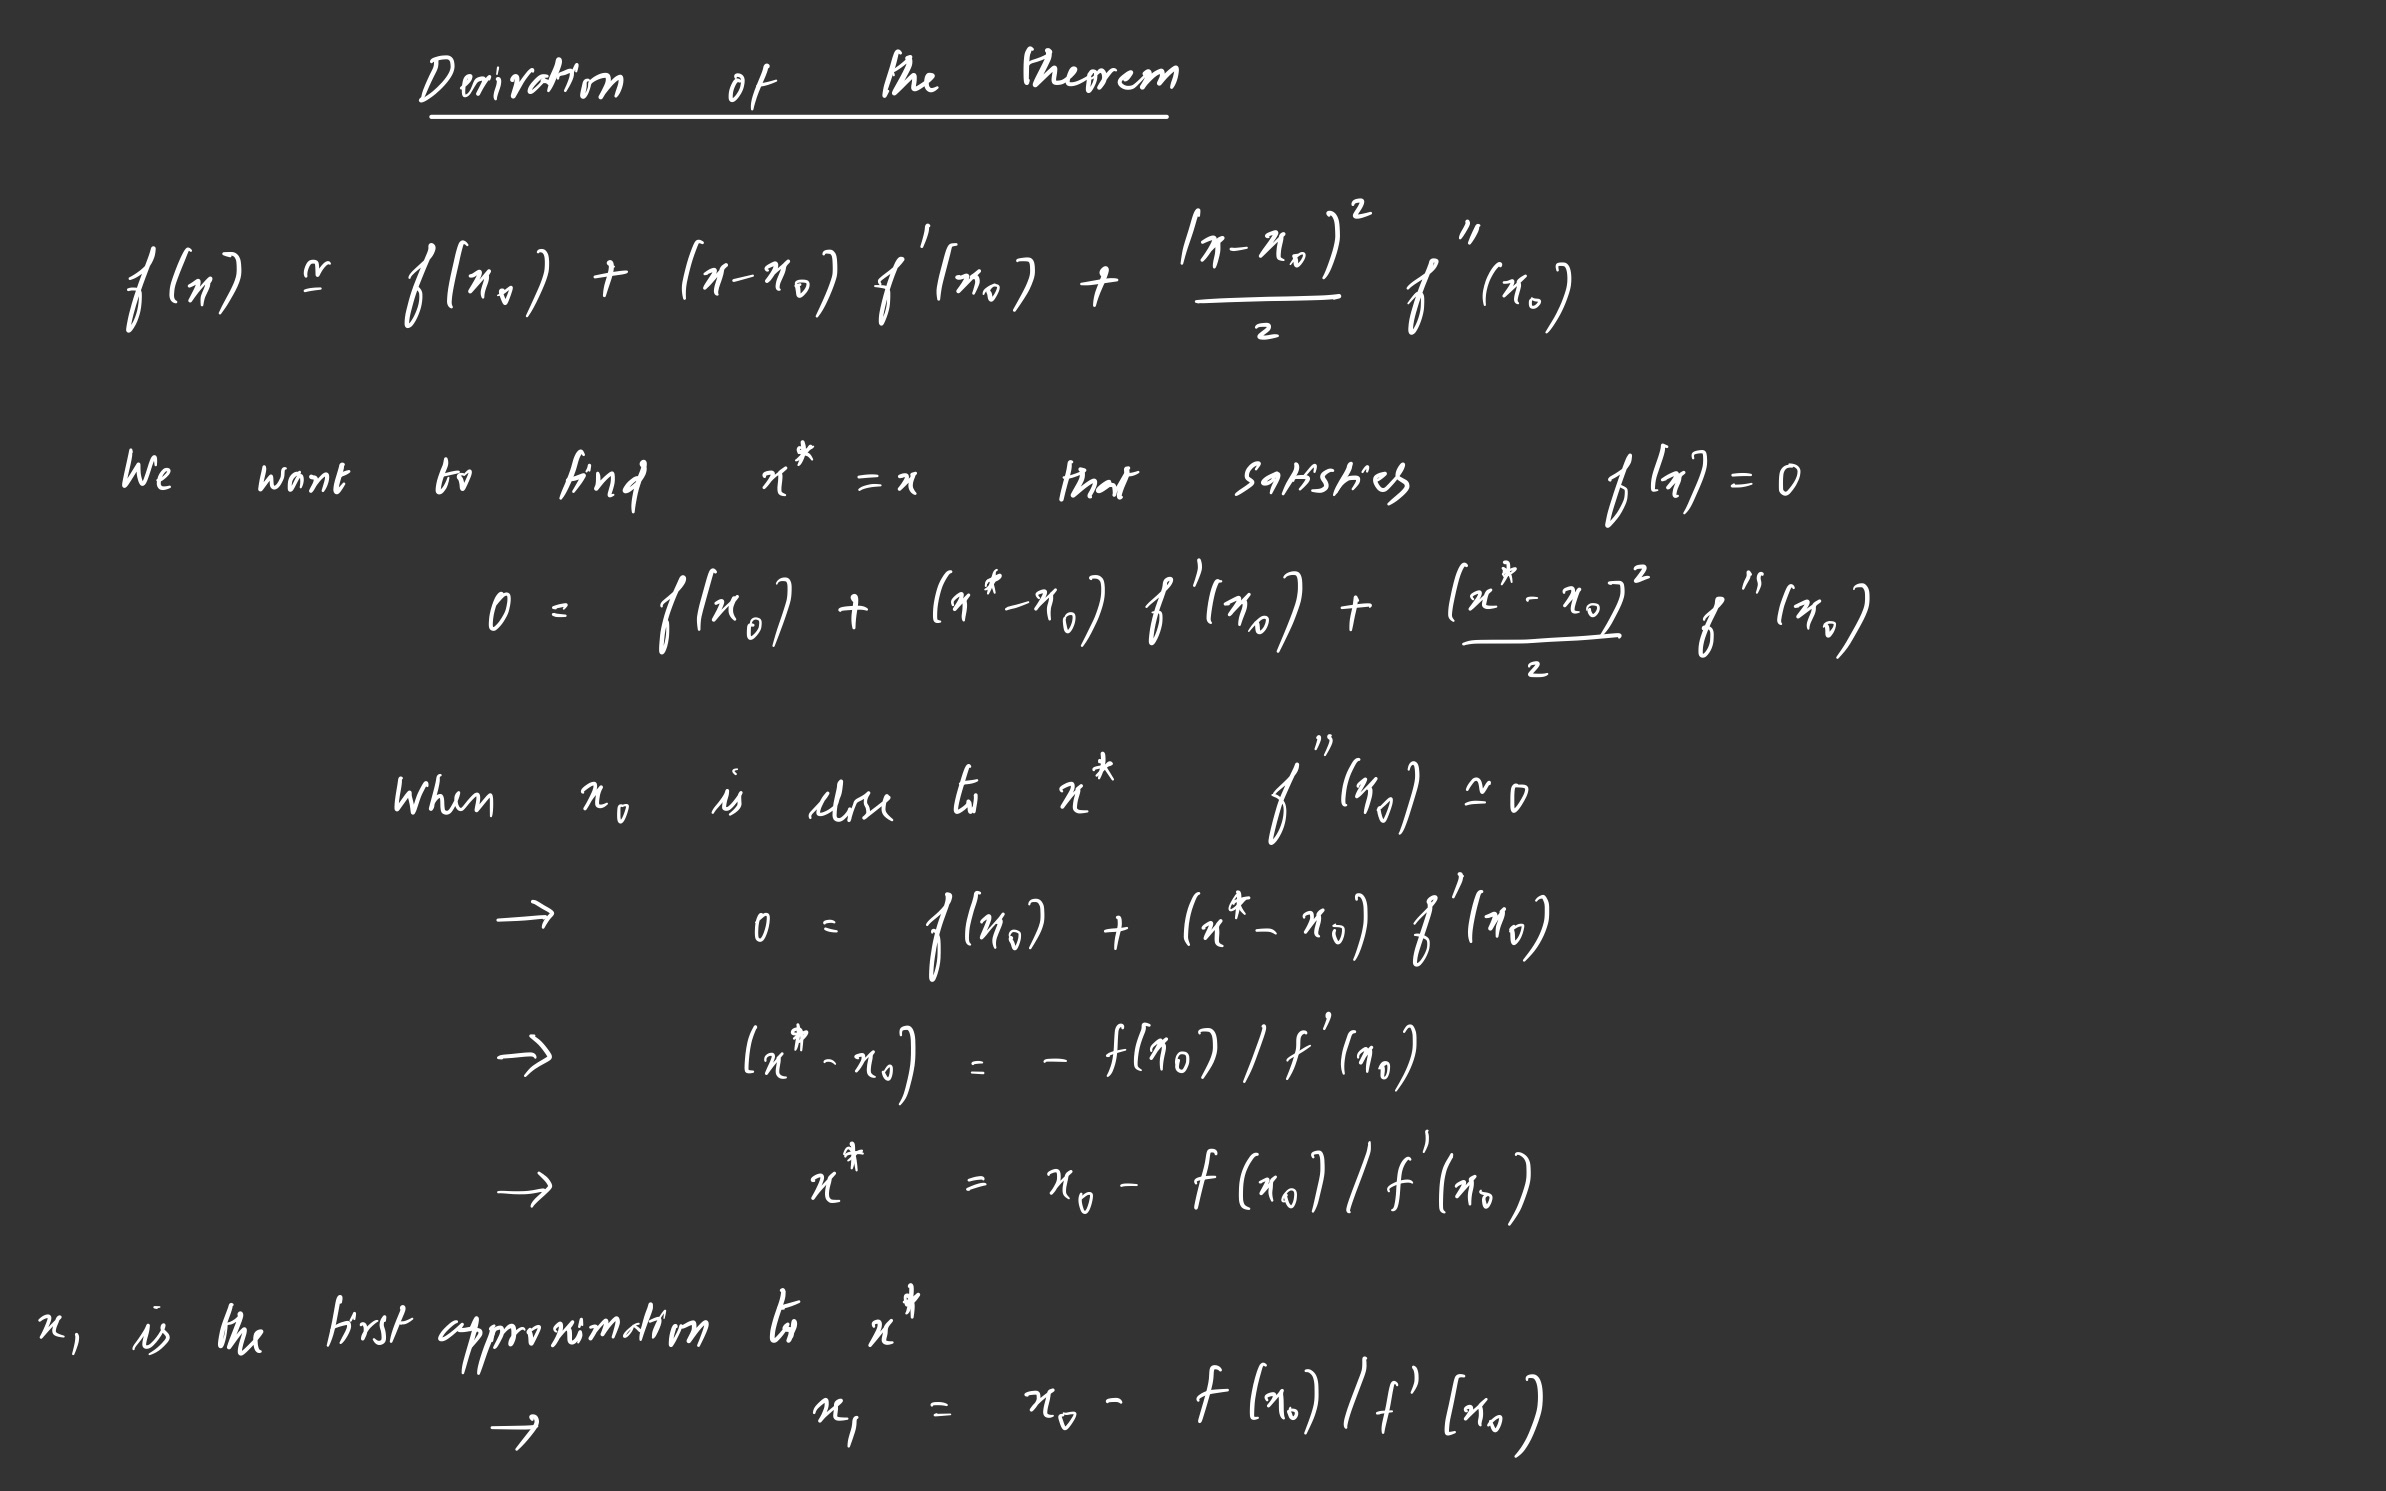 Derivation of the theorem
f(x) ≃ f(x₀) + (x-x₀) f'(x₀) + (x-x₀)²/2 f''(x₀)
We want to find x* = x that satisfies f(x) = 0
0 = f(x₀) + (x*-x₀) f'(x₀) + (x*-x₀)²/2 f''(x₀)
When x₀ is close to x* f''(x₀) ≃ 0
→ 0 = f(x₀) + (x*-x₀) f'(x₀)
→ (x*-x₀) = - f(x₀) / f'(x₀)
→ x* = x₀ - f(x₀) / f'(x₀)
x₁ is the first approximation to x*
→ x₁ = x₀ - f(x₀) / f'(x₀)